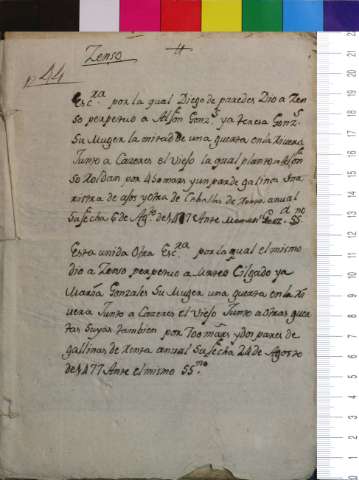 Zenso
nº 44
Escxª por la qual Diego de paredes Dio a Zen
so perpetuo a Alfon Gonzs ya teresa Gonzs
Su Muger la mitad de una guerta en la Rivera
Junto a Cazeres el Viejo la qual planto Alfon
so Roldan por 450 mars y un par de gallinas una
ristra de ajos y otra de Cebollas de Renta anual
Su fecha 6 de Agto de 1477 Ante Gonz. SSno
Esta unida Otra Escxª por la qual el mismo
dio a Zenso perpetuo a Mateo Gilgado ya
Maria Gonzales Su Muger una guerta en la Ri
vera Junto a Cazeres el Viejo Junto a Otras guer
tas Suyas tambien por 700 mars y dos pares de
gallinas de Renta anual Su fecha 24 de Agosto
de 1477 Ante el mismo SSno